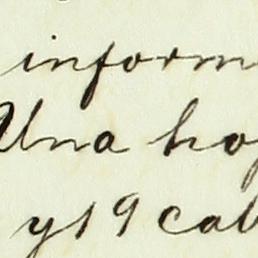 inform
Una ho
y 19 cab